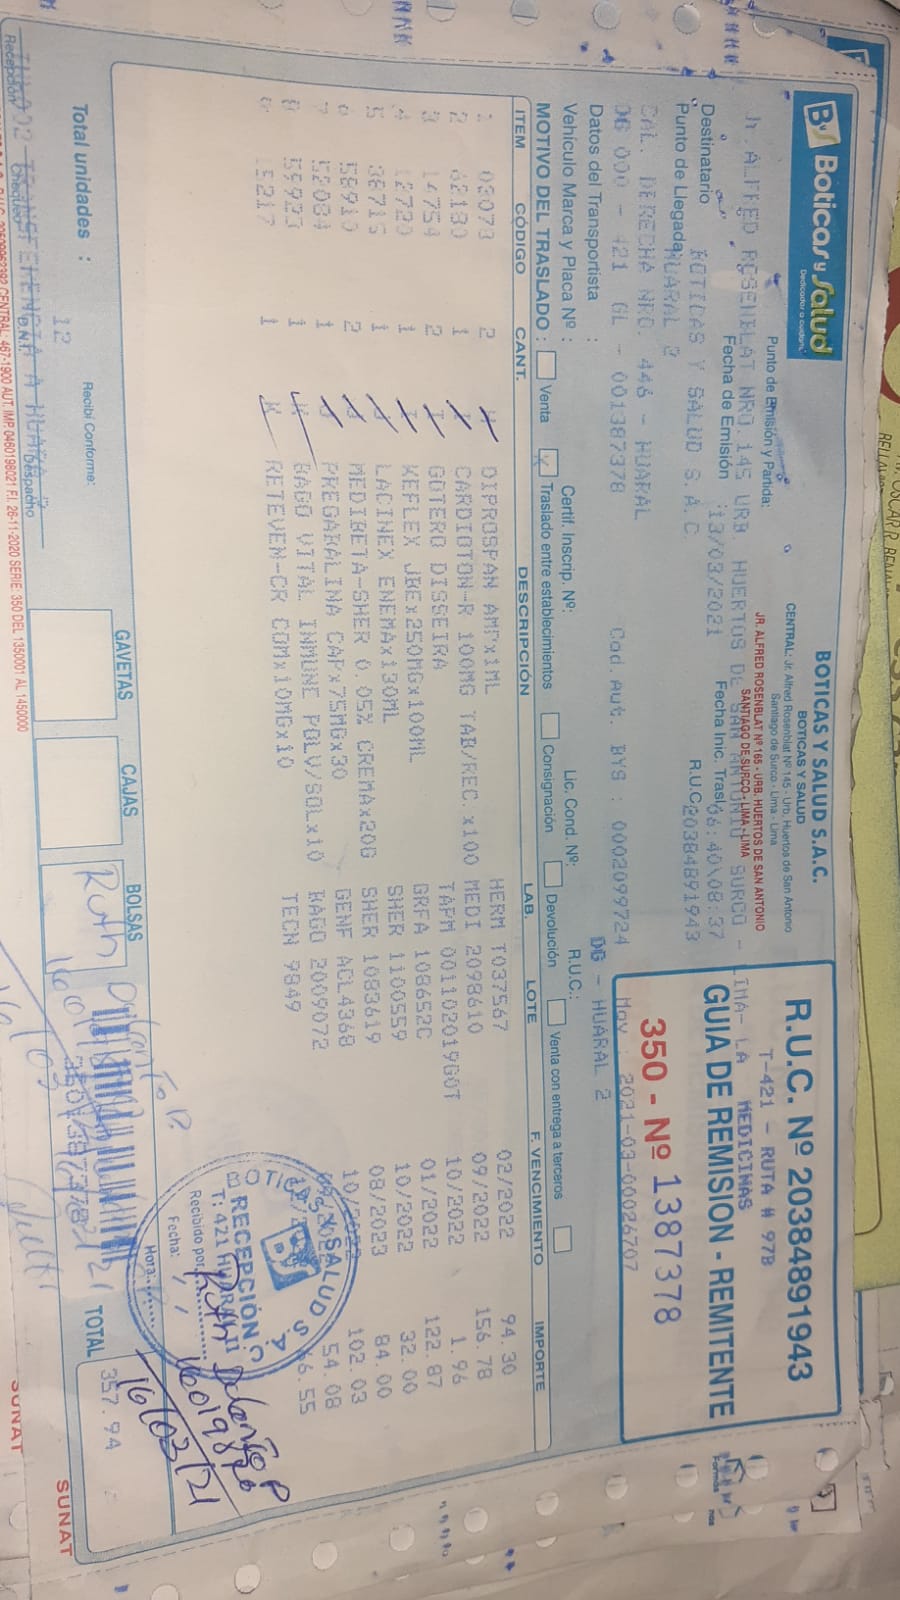 Boticas y Salud
Dedicados a cuidarte
BOTICAS Y SALUD S.A.C.
BOTICAS Y SALUD
CENTRAL: Jr. Alfred Rosenblat Nº 145 - Urb. Huertos de San Antonio
Santiago de Surco - Lima - Lima
JR. ALFRED ROSENBLAT Nº 165 - URB. HUERTOS DE SAN ANTONIO
SANTIAGO DE SURCO - LIMA - LIMA
R.U.C. Nº 20384891943
T-421 - RUTA # 97B
MEDICINAS
GUIA DE REMISION - REMITENTE
350 - Nº 1387378
2021-03-0026707
Punto de Emisión y Partida:
Jr. ALFRED ROSENBLAT NRO.145 URB. HUERTOS DE SAN ANTONIO SURCO - LIMA- LA
Fecha de Emisión : 13/03/2021 Fecha Inic. Trasl 16:40\08:37
Destinatario BOTICAS Y SALUD S.A.C R.U.C 20384891943
Punto de Llegada HUARAL 2
CAL. DERECHA NRO. 446 - HUARAL
DG 000 - 421 GL - 001387378 Cod.Aut. BYS : 0002099724
Datos del Transportista : R.U.C.: DG - HUARAL 2
Vehículo Marca y Placa Nº : Certif. Inscrip. Nº: Lic. Cond. Nº:
MOTIVO DEL TRASLADO : Venta Traslado entre establecimientos Consignación Devolución Venta con entrega a terceros
ITEM CÓDIGO CANT. DESCRIPCIÓN LAB. LOTE F. VENCIMIENTO IMPORTE
1 03073 2 DIPROSPAN AMPx1ML HERM T037567 02/2022 94.30
2 1 CARDIOTON-R 100MG TAB/REC.x100 MEDI 2098610 09/2022 156.78
3 14754 2 GOTERO DISSEIRA TAPM 001102019GOT 10/2022 1.96
4 12720 1 KEFLEX JBEx250MGx100ML GRFA 108652C 01/2022 122.87
5 38715 1 LACINEX ENEMAx130ML SHER 1100559 10/2022 32.00
6 58910 2 MEDIBETA-SHER 0.05% CREMAx20G SHER 1083619 08/2023 84.00
7 52084 1 PREGABALINA CAPx75MGx30 GENF ACL4368 10/2022 102.03
8 59923 1 BAGO VITAL INMUNE POLV/SOLx10 BAGO 2009072 54.08
9 15217 1 RETEVEM-CR COMx10MGx10 TECN 9849 6.55
SALUD S A
RECEPCIÓN
T: 421 HUARAL II
Recibido por:
Fecha:
Hora:
Ruth
16/03/21
GAVETAS CAJAS BOLSAS
Ruth
TOTAL 357.94
Total unidades : 12 Recibí Conforme:
TRANSFERENCIA A HUARAL
Recepción Chequeo D.N.I. Despacho
CENTRAL: 467-1900 AUT. IMP. 0460198021 F.I. 26-11-2020 SERIE: 350 DEL 1350001 AL 1450000
SUNAT
SUNAT